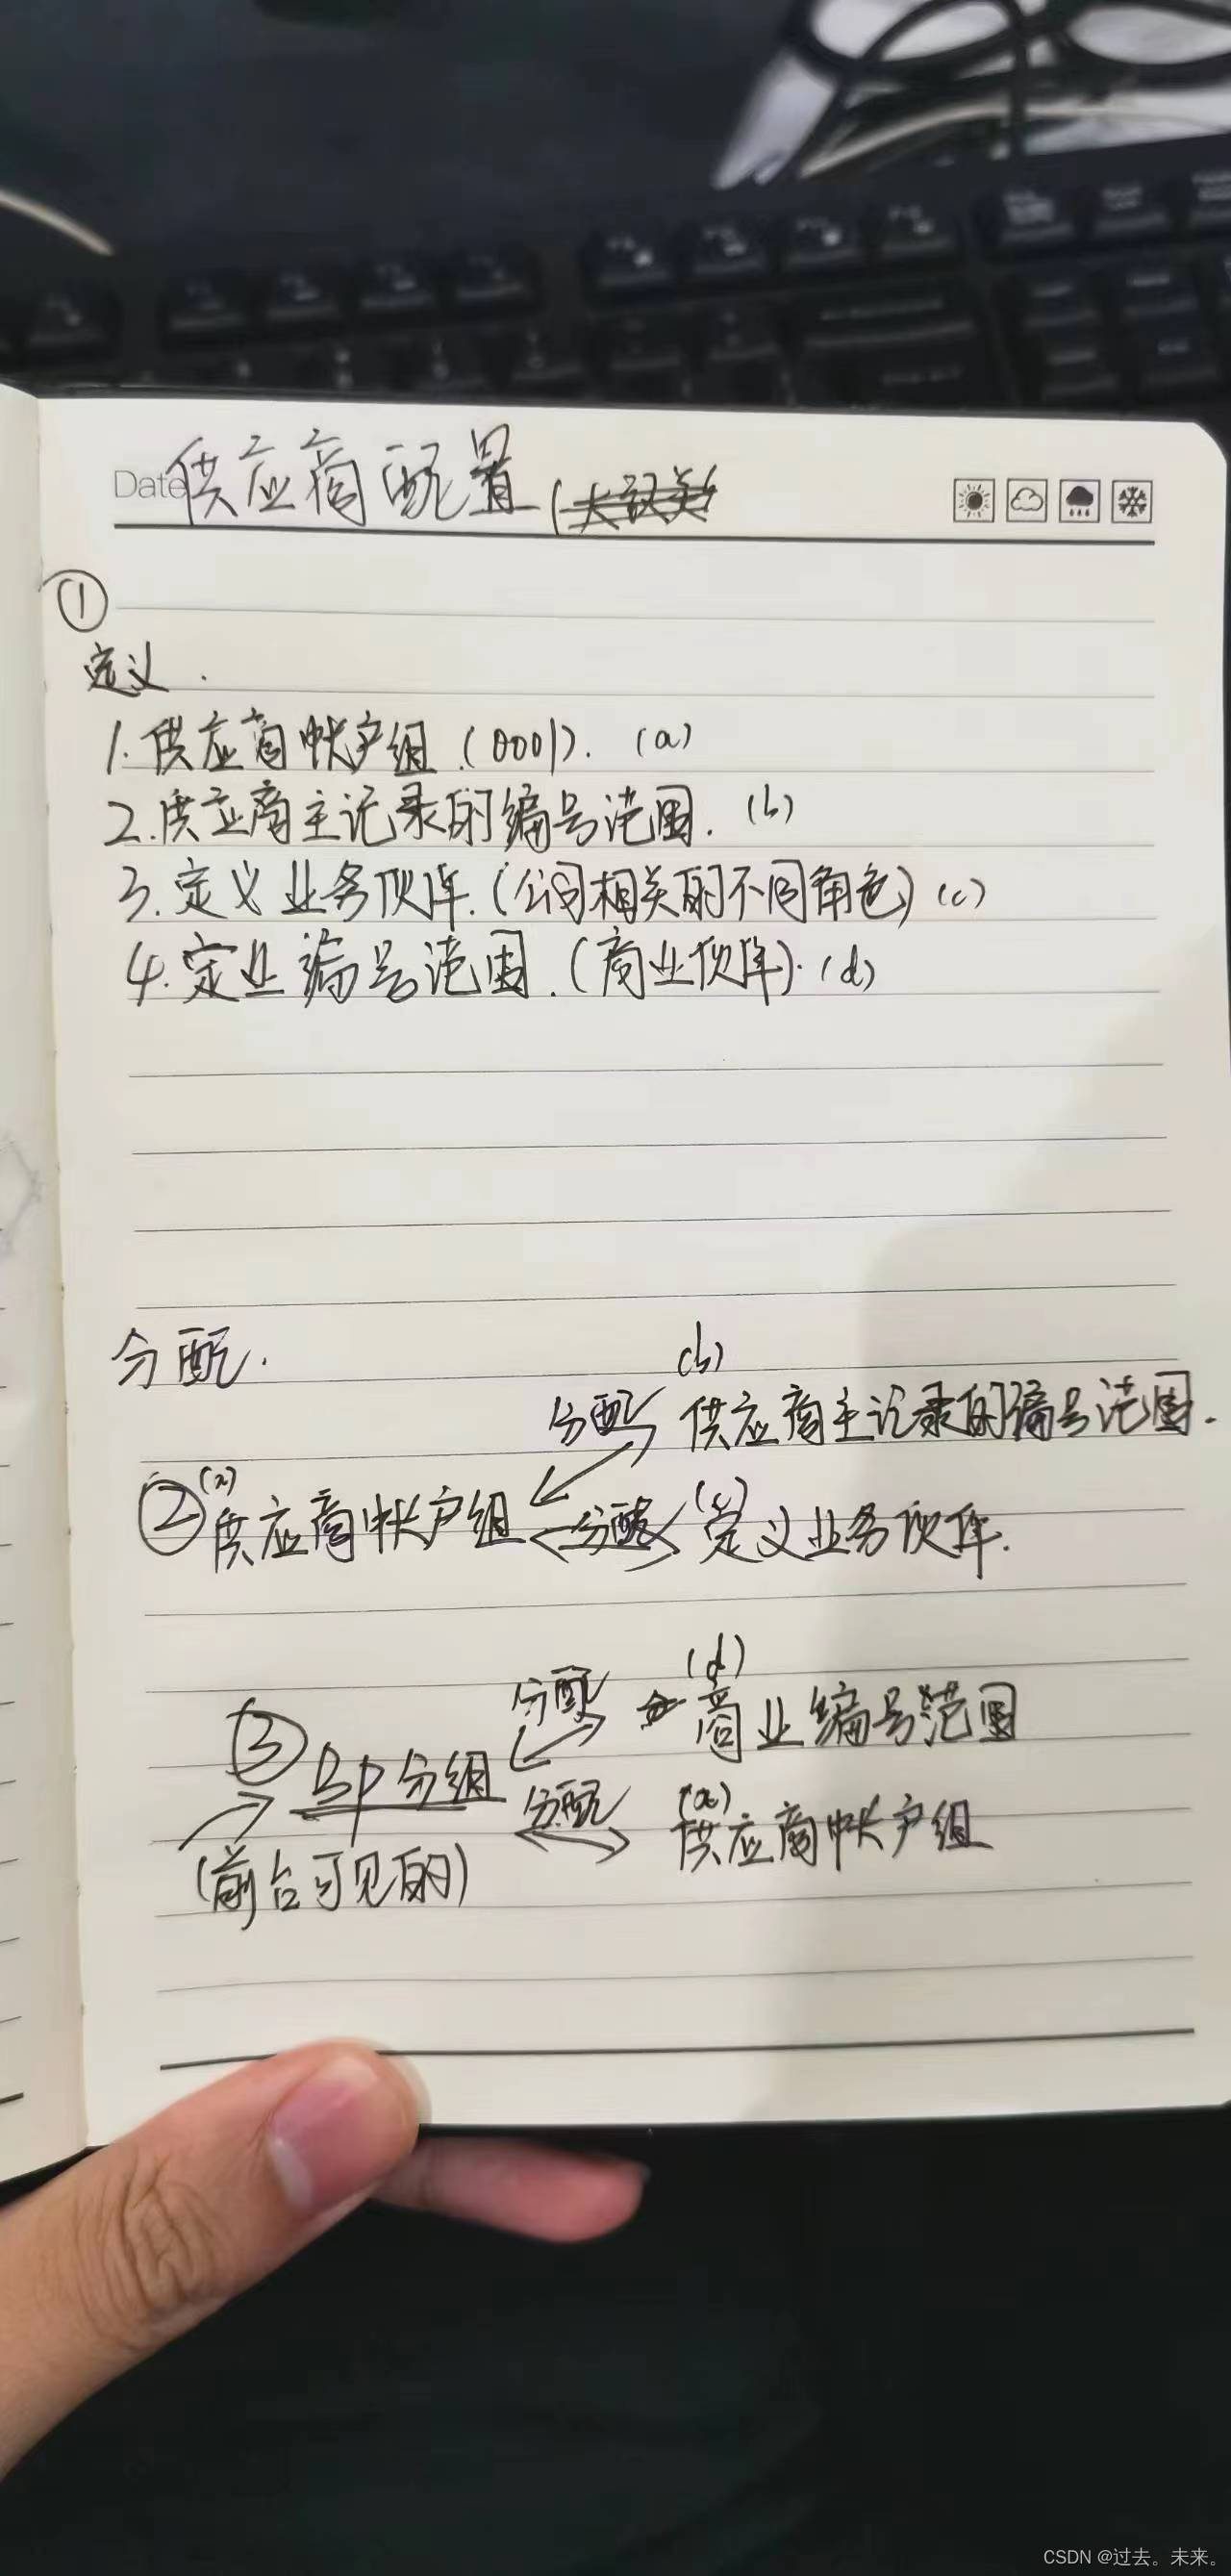 Date 供应商配置
①
定义.
1.供应商帐户组.(0001). (a)
2.供应商主记录的编号范围. (b)
3.定义业务伙伴.(公司相关的不同角色) (c)
4.定业编号范围.(商业伙伴). (d)
分配.
(b)
分配 供应商主记录的编号范围.
(a) (c)
②供应商帐户组 分配 定义业务伙伴.
(d)
分配 商业编号范围
③ BP分组
分配 (a) 供应商帐户组
(前台可见的)
CSDN @过去。未来。